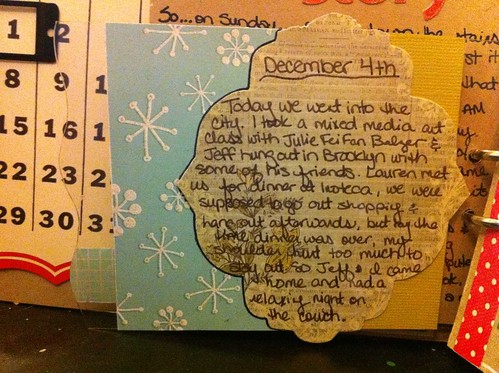 So...on Sunday
Story
stairs
1 2
8 9
15 16 1
22 23
29 30 3
December 4th
Today we went into the
city. I took a mixed media art
class with Julie Fei Fan Balzer &
Jeff hung out in Brooklyn with
some of his friends. Lauren met
us for dinner at we were
supposed to go out shopping &
hang out afterwards, but by the
time dinner was over, my
shoulder hurt too much to
stay out so Jeff & I came
home and had a
relaxing night on
the couch.